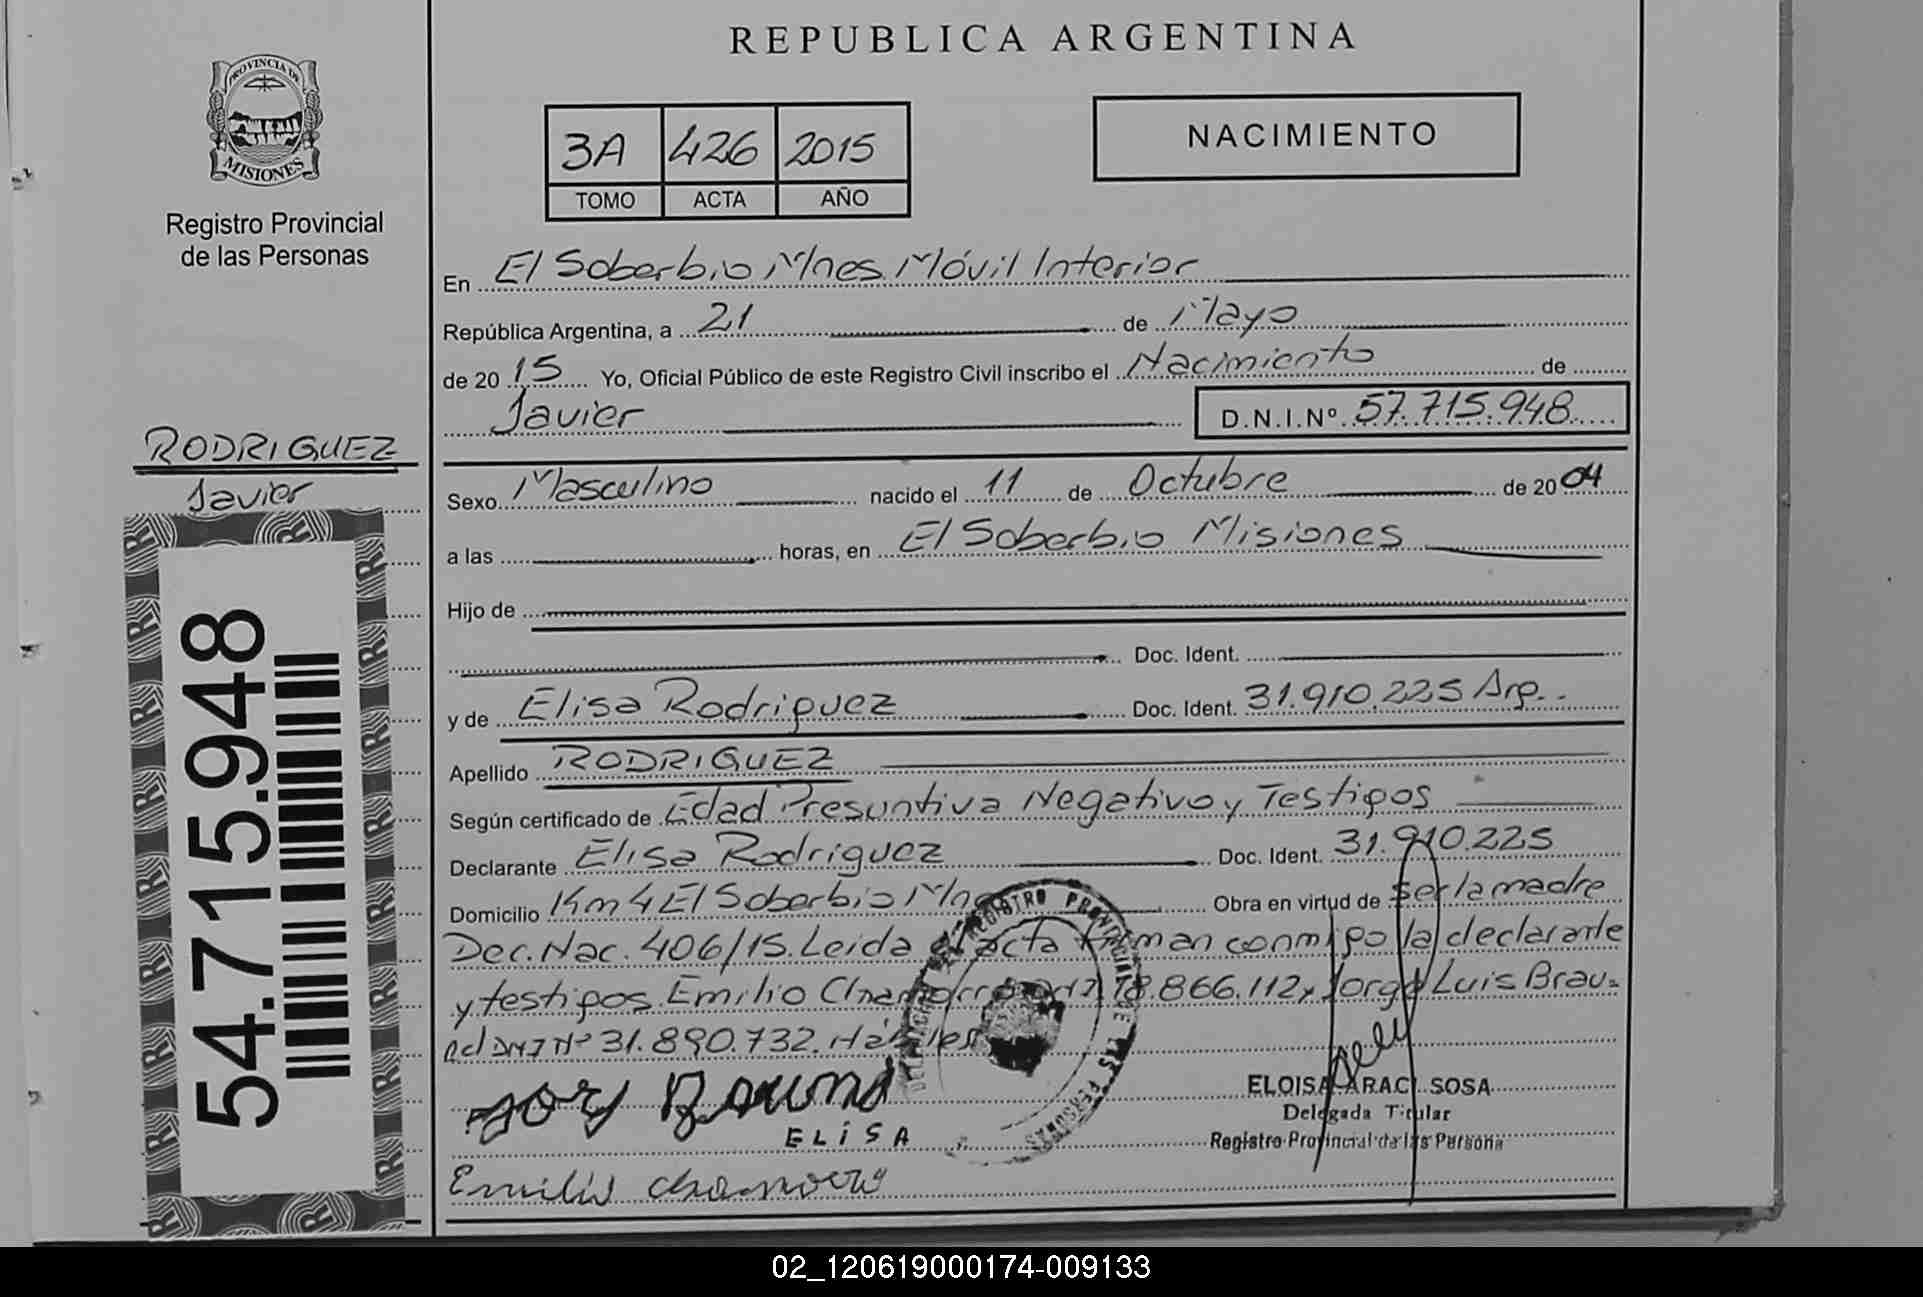 REPUBLICA ARGENTINA
PROVINCIA DE
MISIONES
Registro Provincial
de las Personas
3A 426 2015
TOMO ACTA AÑO
NACIMIENTO
En El Soberbio Mnes. Móvil Interior
República Argentina, a 21 de Mayo
de 2015 Yo, Oficial Público de este Registro Civil inscribo el Nacimiento de
Javier D.N.I.Nº 57.715.948
RODRIGUEZ
Javier
54.715.948
Sexo Masculino nacido el 11 de Octubre de 2004
a las horas, en El Soberbio Misiones
Hijo de
Doc. Ident.
y de Elisa Rodriguez Doc. Ident. 31.910.225 Arg.
Apellido RODRIGUEZ
Según certificado de Edad Presuntiva Negativo y Testigos
Declarante Elisa Rodriguez Doc. Ident. 31.910.225
Domicilio Km 4 El Soberbio Obra en virtud de ser la madre
Dec. Nac. 406/15. Leida el acta firman conmigo la declarante
y testigos Emilio Chamorro 18.866.112 y Jorge Luis Brau-
nd DNI Nº 31.890.732. Hábiles
REGISTRO PROVINCIAL DE LAS PERSONAS
ELOISA ARACI SOSA
Delegada Titular
Registro Provincial de las Persona
ELISA
Emilio Chamorro
02_120619000174-009133